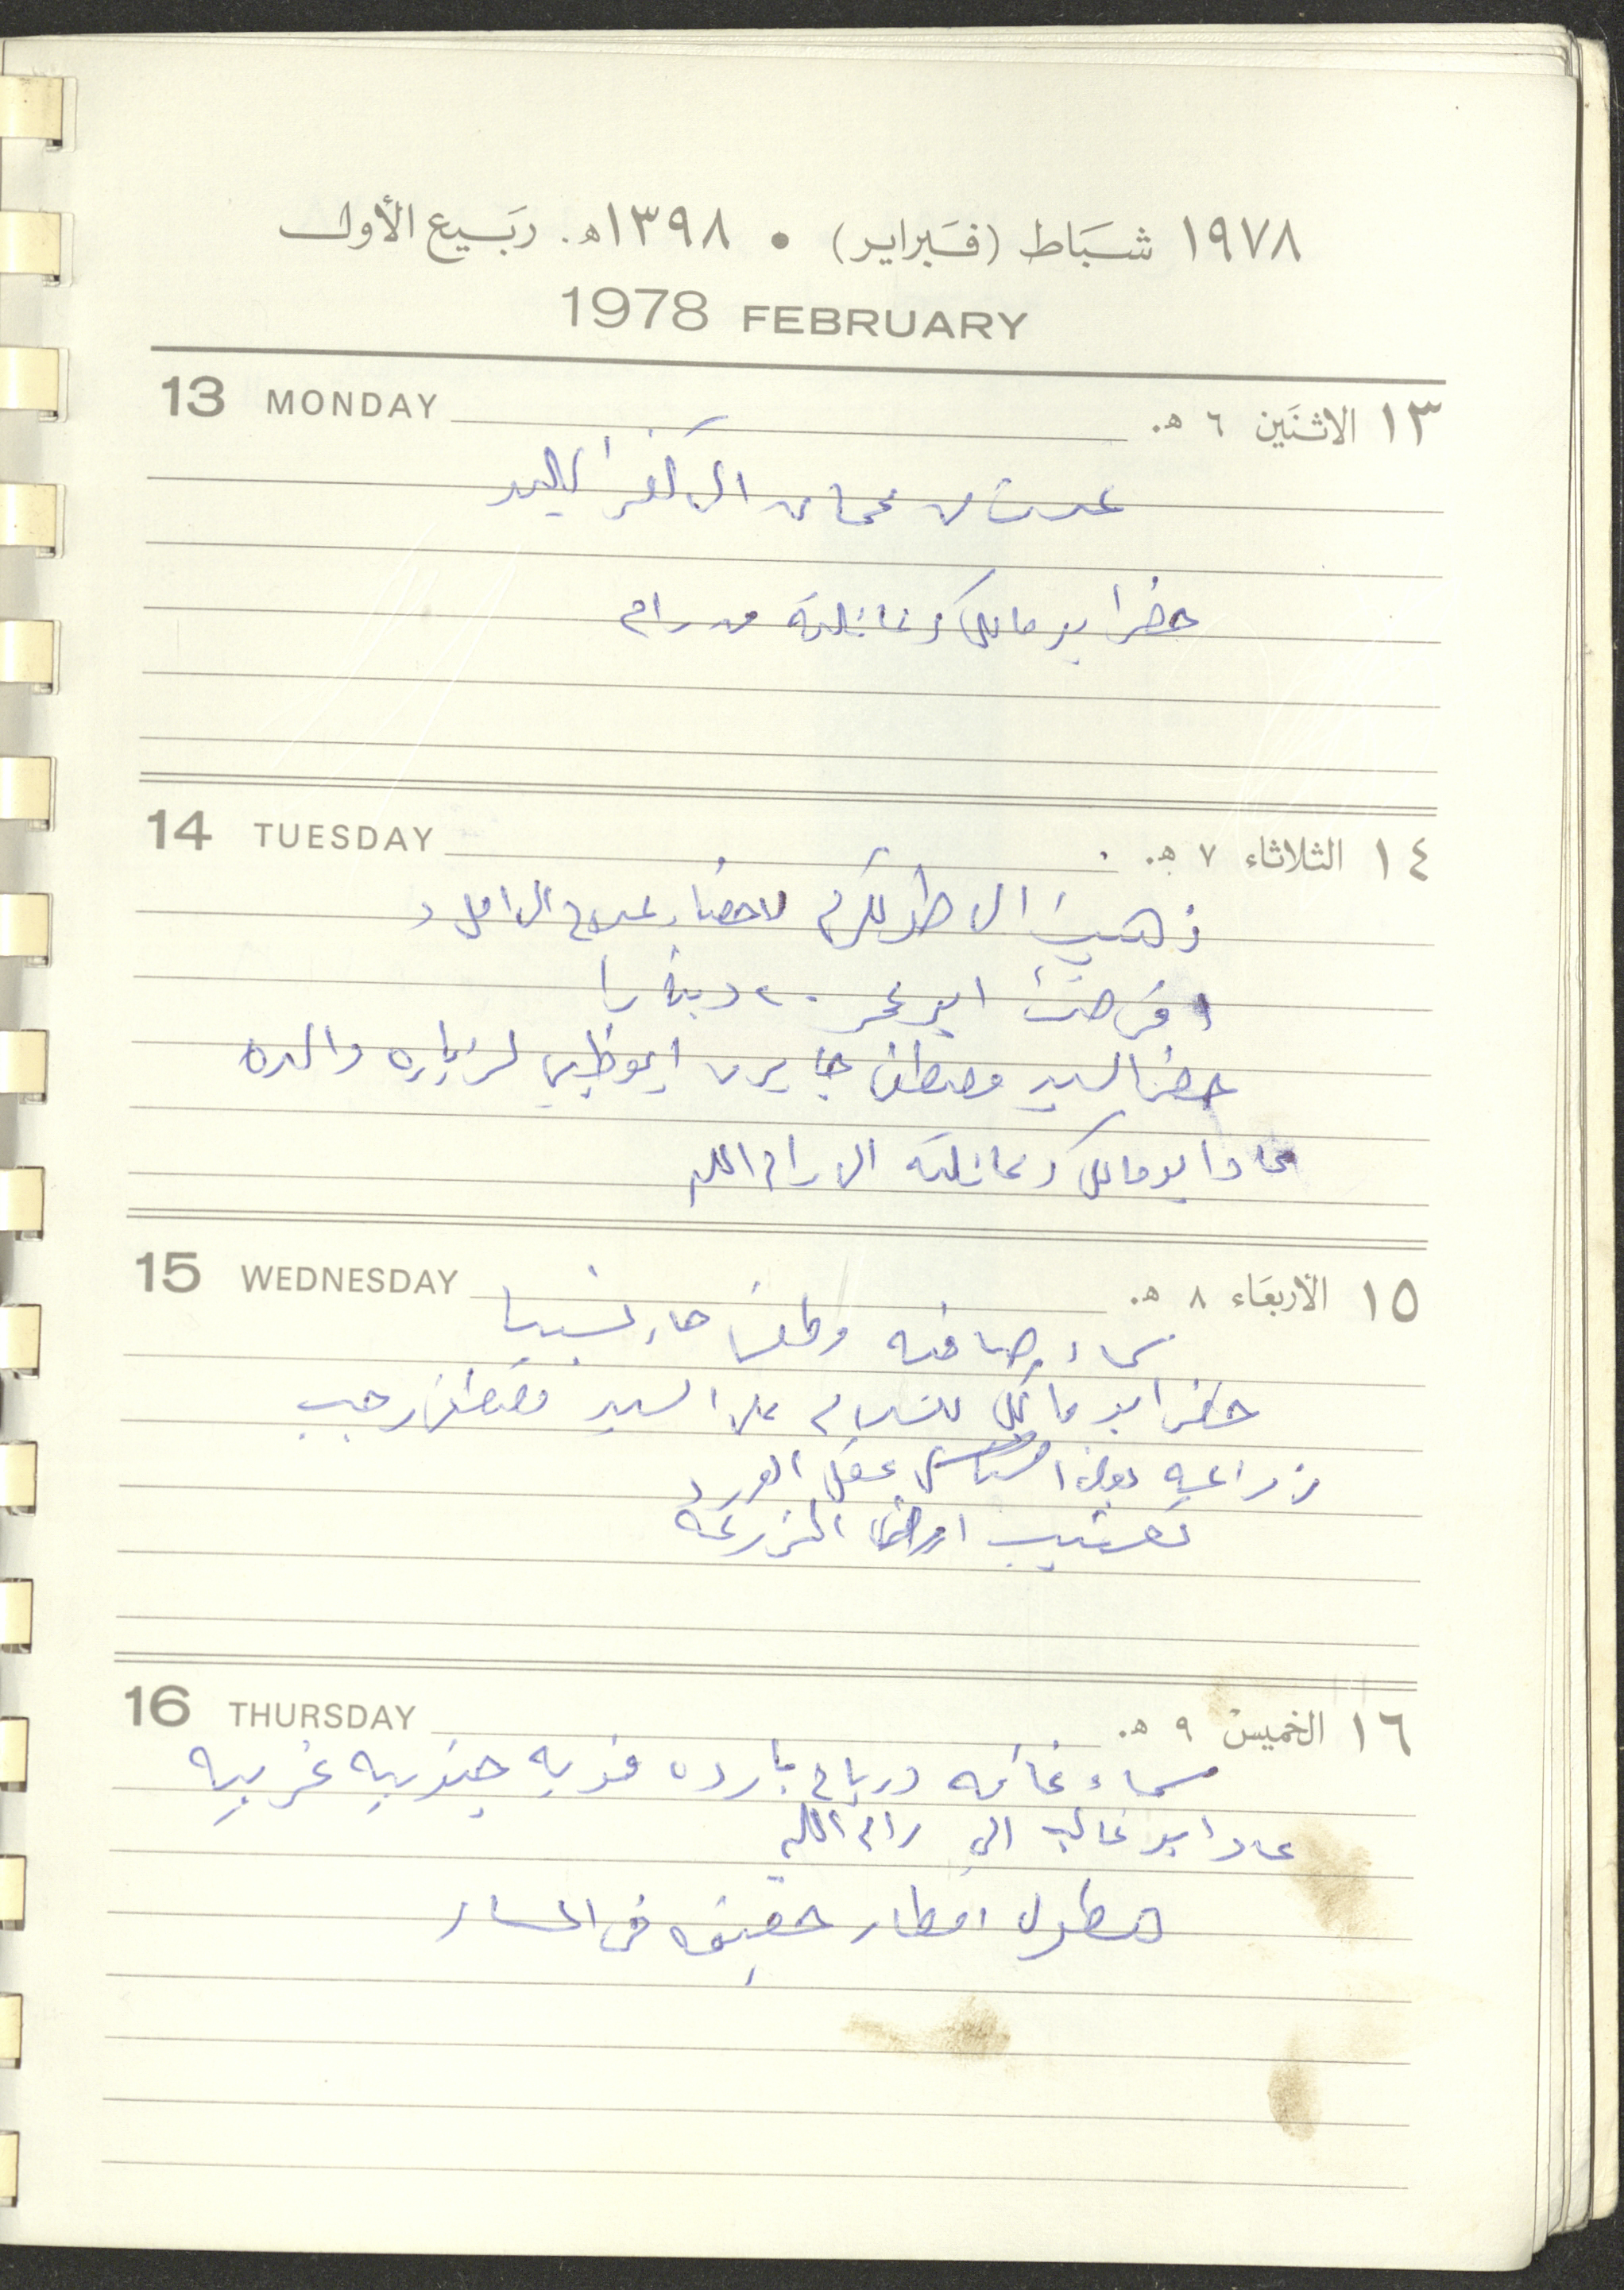 ١٩٧٨ شباط (فبراير) • ١٣٩٨هـ. ربيع الأول
1978 FEBRUARY
13 MONDAY ١٣ الاثنين ٦ هـ.
عدت من عمان الى كفر اللبد
حضر ابو مالك وعائلته من رام
14 TUESDAY ١٤ الثلاثاء ٧ هـ.
ذهبت الى طولكرم لاحضار علاج
اقرضت ابو عمر ٢٠ دينارا
حضر السيد مصطفى جابر من ابوظبي لزيارة والده
عاد ابو مالك وعائلته الى رام الله
15 WEDNESDAY ١٥ الأربعاء ٨ هـ.
سماء صافيه وطقس حار نسبيا
حضر ابو مالك للسلام على السيد مصطفى رجب
زراعة بعض عقل الورد
تعشيب ارض المزرعه
16 THURSDAY ١٦ الخميس ٩ هـ.
سماء غائمه ورياح بارده قويه جنوبيه غربيه
عاد ابو غالب الى رام الله
هطول امطار خفيفه في المساء